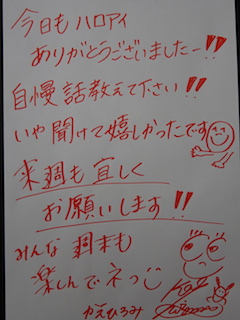 今日もハロアイ
ありがとうございましたー!!
自慢話教えて下さい!!
いや聞けて嬉しかったです
来週も宜しく
お願いします!!
みんな週末も
楽しんでネっ
かえひろみ